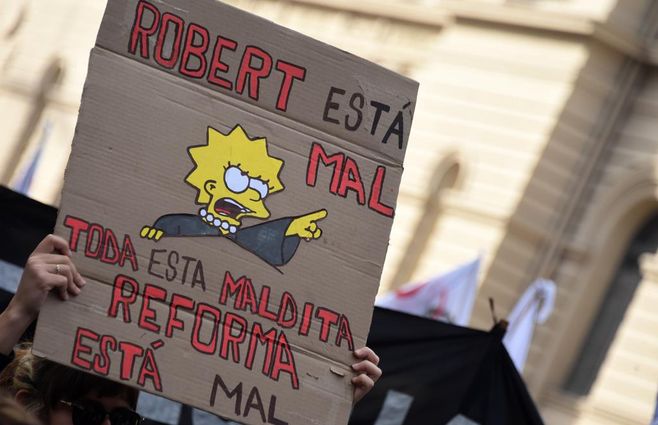 ROBERT ESTÁ
MAL
TODA ESTA MALDITA
REFORMA
ESTÁ MAL